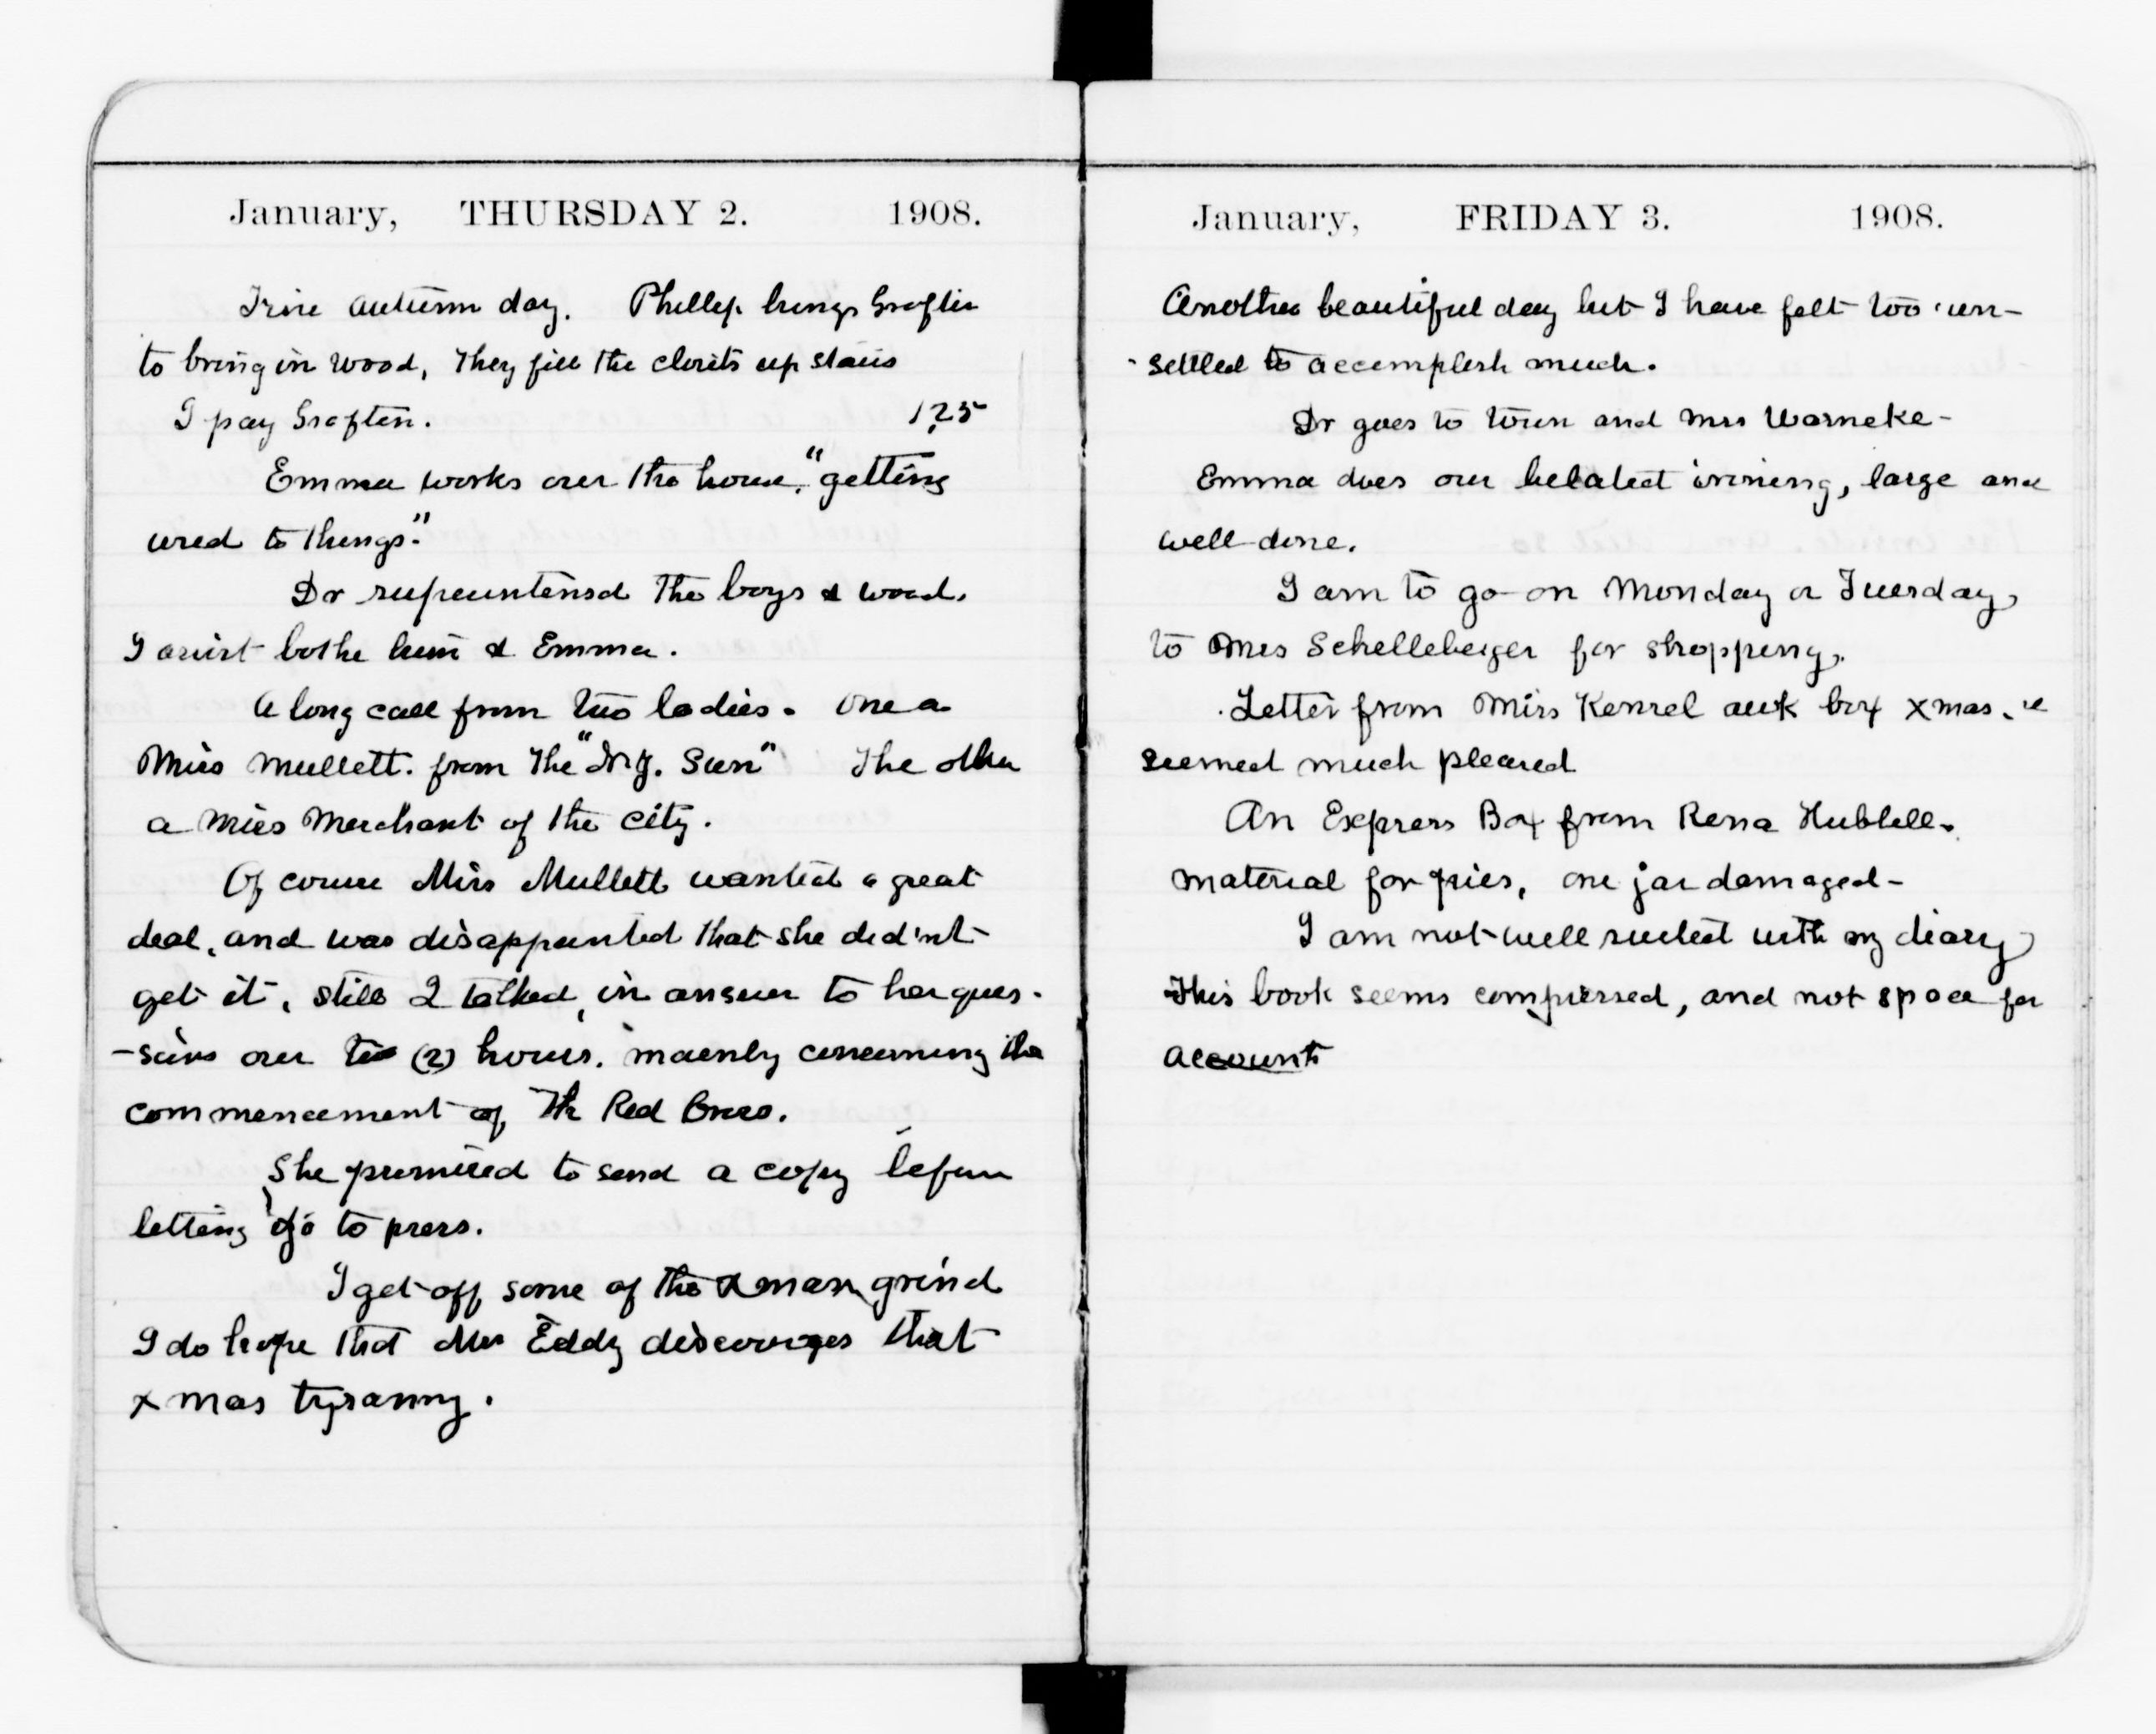 January, THURSDAY 2. 1908.
Fine autumn day. Phillip brings Graften
to bring in wood, They fill the closets up stairs
I pay Graften. 1.25
Emma works over the house, "getting
used to things."
Dr superintensd the boys & wood.
I assist bothe him & Emma.
A long call from two ladies. One a
Miss Mullett. from the "N.Y. Sun" The other
a Miss Merchant of the city.
Of course Miss Mullett wanted a great
deal, and was disappointed that she did'nt
get it, still I talked, in answer to her ques-
-sions over two (2) hours. mainly concerning the
commencement of The Red Cross.
She promised to send a copy before
letting go to press.
I get off some of the Xmas grind
I do hope that Mrs Eddy discourages that
xmas tyranny.
January, FRIDAY 3. 1908.
Another beautiful day but I have felt too un-
-settled to accomplish much.
Dr goes to town and Mrs Warneke-
Emma does our belated ironing, large and
well done.
I am to go on Monday or Tuesday,
to Mrs Schelleberger for shopping.
Letter from Miss Kensel box xmas.
seemed much pleased
An Express Box from Rena Hubbell.
material for pies, one jar damaged-
I am not well suited with my diary
This book seems compressed, and not space for
accounts